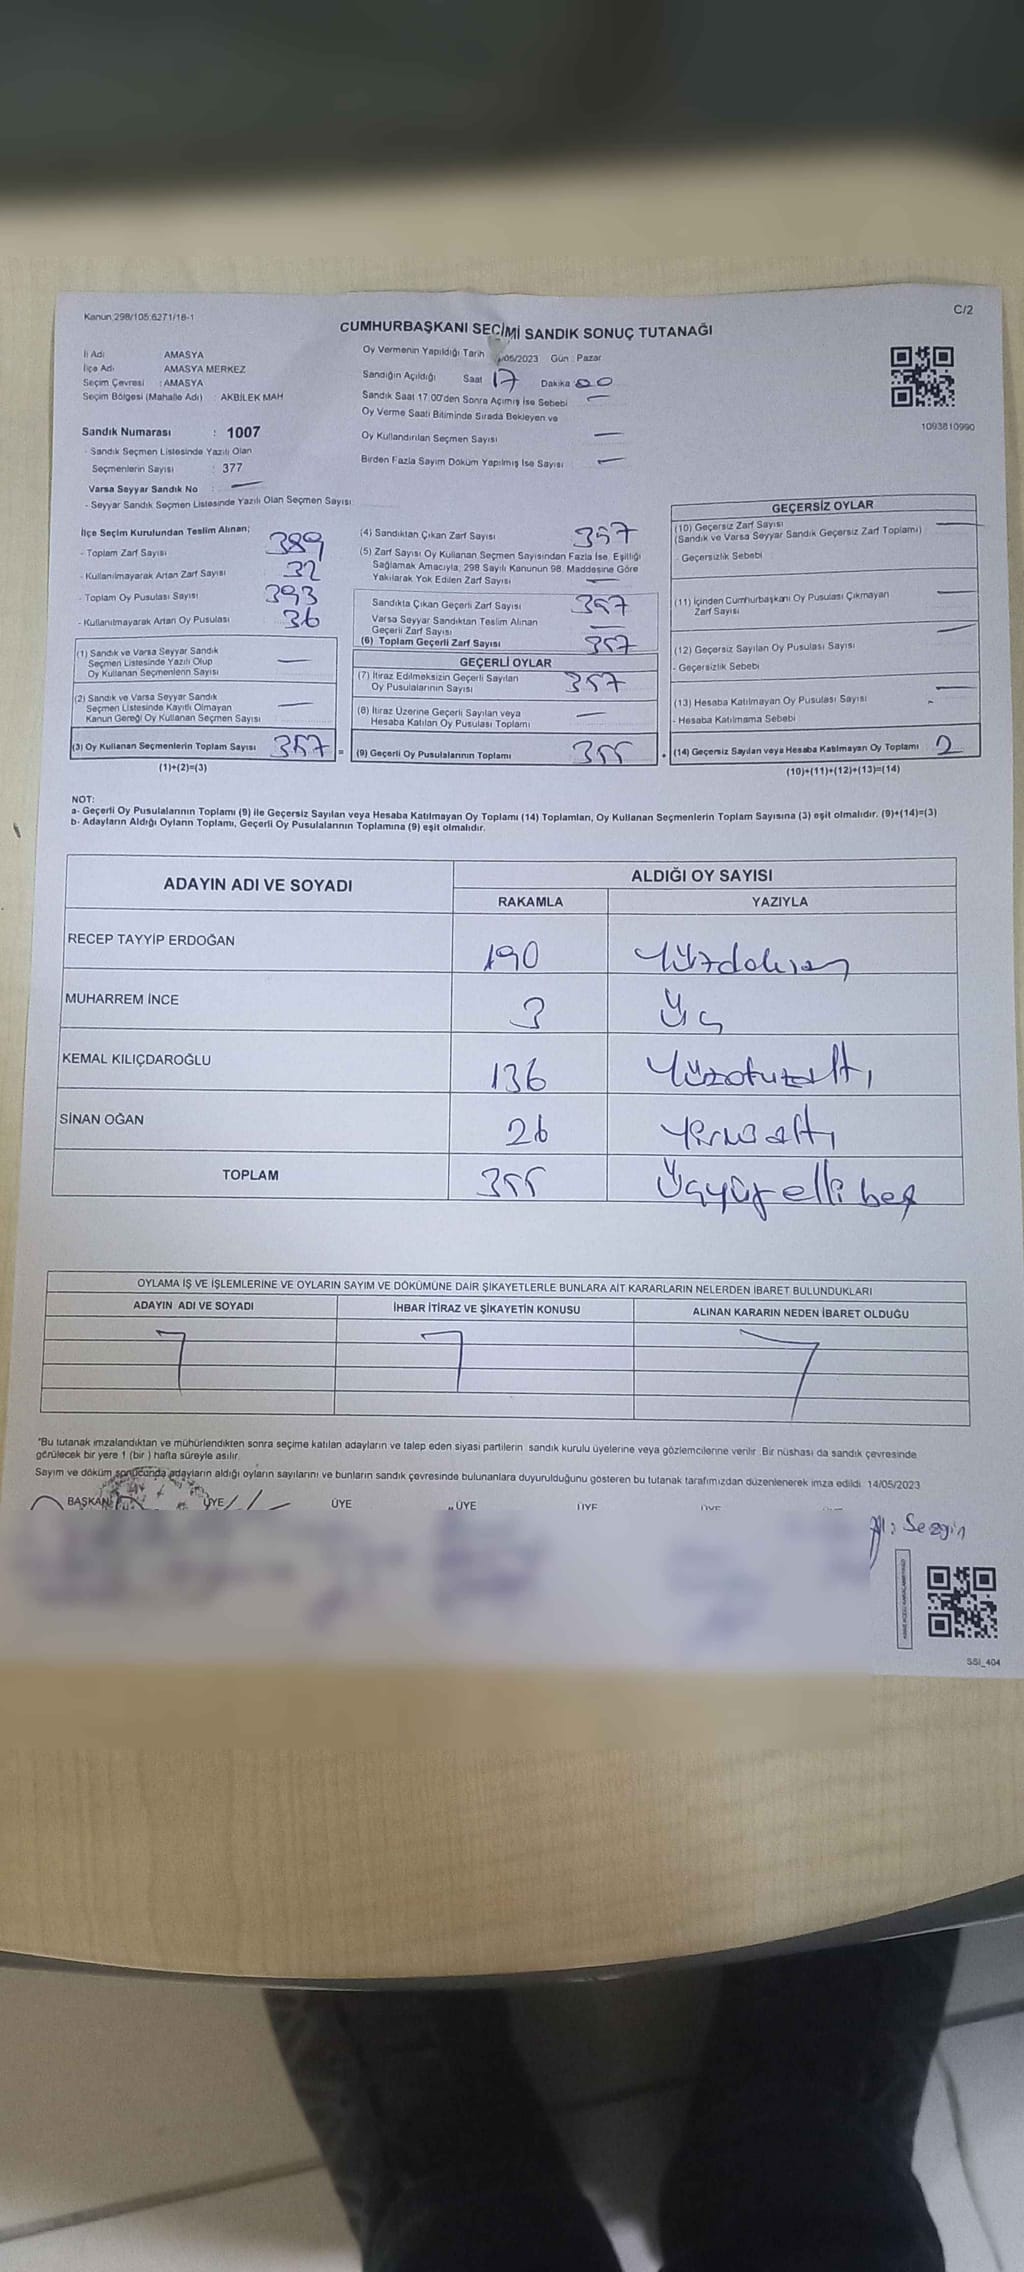 Kanun 298/105;6271/16-1
C/2
CUMHURBAŞKANI SEÇİMİ SANDIK SONUÇ TUTANAĞI
İl Adı AMASYA
İlçe Adı AMASYA MERKEZ
Seçim Çevresi : AMASYA
Seçim Bölgesi (Mahalle Adı) : AKBİLEK MAH
Sandık Numarası : 1007
- Sandık Seçmen Listesinde Yazılı Olan
Seçmenlerin Sayısı : 377
Varsa Seyyar Sandık No : —
- Seyyar Sandık Seçmen Listesinde Yazılı Olan Seçmen Sayısı
Oy Vermenin Yapıldığı Tarih /05/2023 Gün : Pazar
Sandığın Açıldığı Saat 17 Dakika 00
Sandık Saat 17.00'den Sonra Açımış İse Sebebi —
Oy Verme Saati Bitiminde Sırada Bekleyen ve
Oy Kullandırılan Seçmen Sayısı —
Birden Fazla Sayım Döküm Yapılmış İse Sayısı —
1093810990
İlçe Seçim Kurulundan Teslim Alınan;
- Toplam Zarf Sayısı 389
- Kullanılmayarak Artan Zarf Sayısı 32
- Toplam Oy Pusulası Sayısı 393
- Kullanılmayarak Artan Oy Pusulası 36
(1) Sandık ve Varsa Seyyar Sandık
Seçmen Listesinde Yazılı Olup
Oy Kullanan Seçmenlerin Sayısı —
(2) Sandık ve Varsa Seyyar Sandık
Seçmen Listesinde Kayıtlı Olmayan
Kanun Gereği Oy Kullanan Seçmen Sayısı —
(3) Oy Kullanan Seçmenlerin Toplam Sayısı 357 =
(1)+(2)=(3)
(4) Sandıktan Çıkan Zarf Sayısı 357
(5) Zarf Sayısı Oy Kullanan Seçmen Sayısından Fazla İse, Eşitliği
Sağlamak Amacıyla, 298 Sayılı Kanunun 98. Maddesine Göre
Yakılarak Yok Edilen Zarf Sayısı —
Sandıkta Çıkan Geçerli Zarf Sayısı 357
Varsa Seyyar Sandıktan Teslim Alınan
Geçerli Zarf Sayısı —
(6) Toplam Geçerli Zarf Sayısı 357
GEÇERLİ OYLAR
(7) İtiraz Edilmeksizin Geçerli Sayılan
Oy Pusulalarının Sayısı 357
(8) İtiraz Üzerine Geçerli Sayılan veya
Hesaba Katılan Oy Pusulası Toplamı —
(9) Geçerli Oy Pusulalarının Toplamı 355 +
GEÇERSİZ OYLAR
(10) Geçersiz Zarf Sayısı —
(Sandık ve Varsa Seyyar Sandık Geçersiz Zarf Toplamı)
- Geçersizlik Sebebi
(11) İçinden Cumhurbaşkanı Oy Pusulası Çıkmayan —
Zarf Sayısı
(12) Geçersiz Sayılan Oy Pusulası Sayısı —
- Geçersizlik Sebebi
(13) Hesaba Katılmayan Oy Pusulası Sayısı —
- Hesaba Katılmama Sebebi
(14) Geçersiz Sayılan veya Hesaba Katılmayan Oy Toplamı 2
(10)+(11)+(12)+(13)=(14)
NOT:
a- Geçerli Oy Pusulalarının Toplamı (9) ile Geçersiz Sayılan veya Hesaba Katılmayan Oy Toplamı (14) Toplamları, Oy Kullanan Seçmenlerin Toplam Sayısına (3) eşit olmalıdır. (9)+(14)=(3)
b- Adayların Aldığı Oyların Toplamı, Geçerli Oy Pusulalarının Toplamına (9) eşit olmalıdır.
ADAYIN ADI VE SOYADI ALDIĞI OY SAYISI
RAKAMLA YAZIYLA
RECEP TAYYİP ERDOĞAN 190 Yüzdoksan
MUHARREM İNCE 3 Üç
KEMAL KILIÇDAROĞLU 136 Yüzotuzaltı
SİNAN OĞAN 26 Yirmi altı
TOPLAM 355 Üçyüz elli beş
OYLAMA İŞ VE İŞLEMLERİNE VE OYLARIN SAYIM VE DÖKÜMÜNE DAİR ŞİKAYETLERLE BUNLARA AİT KARARLARIN NELERDEN İBARET BULUNDUKLARI
ADAYIN ADI VE SOYADI İHBAR İTİRAZ VE ŞİKAYETİN KONUSU ALINAN KARARIN NEDEN İBARET OLDUĞU
"Bu tutanak imzalandıktan ve mühürlendikten sonra seçime katılan adayların ve talep eden siyasi partilerin sandık kurulu üyelerine veya gözlemcilerine verilir. Bir nüshası da sandık çevresinde
görülecek bir yere 1 (bir ) hafta süreyle asılır.
Sayım ve döküm sonucunda adayların aldığı oyların sayılarını ve bunların sandık çevresinde bulunanlara duyurulduğunu gösteren bu tutanak tarafımızdan düzenlenerek imza edildi. 14/05/2023
BAŞKAN ÜYE ÜYE ÜYE ÜYE ÜYE
Sezgin
SSI_404